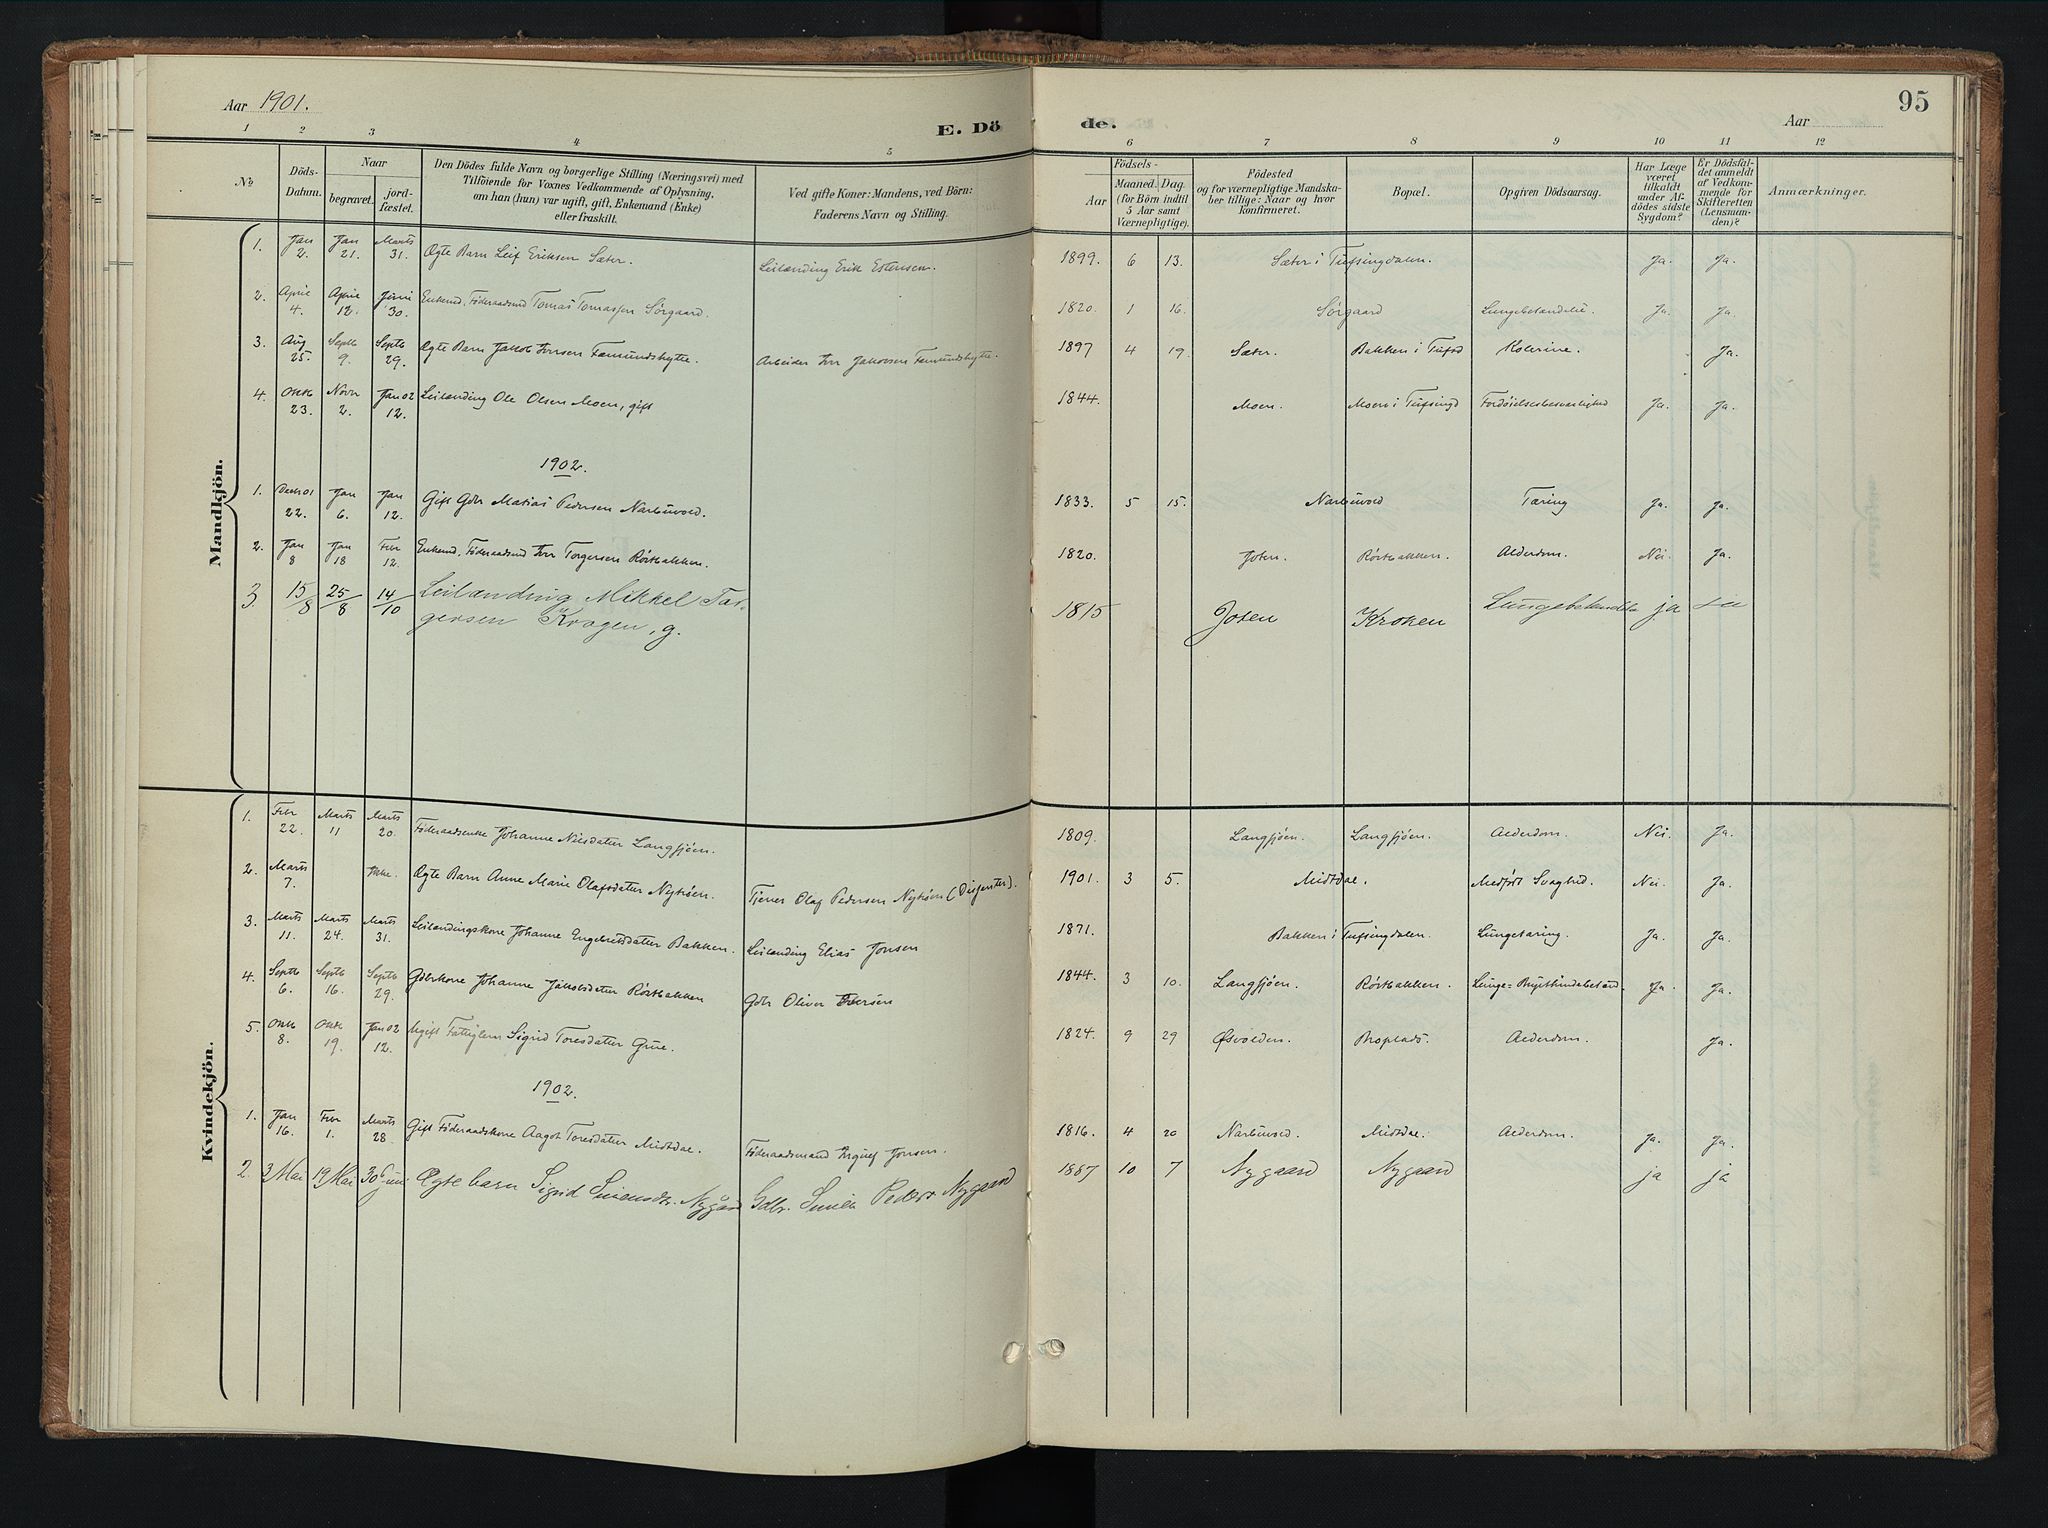 Aar 1901.
E. Dö
de.
Aar
95
1 2 3 4 5 6 7 8 9 10 11 12
No
Döds-Datum.
Naar
begravet.
jord-fæstet.
Den Dödes fulde Navn og borgerlige Stilling (Næringsvei) med
Tilföiende for Voxnes Vedkommende af Oplysning,
om han (hun) var ugift, gift, Enkemand (Enke)
eller fraskilt.
Ved gifte Koner: Mandens, ved Börn:
Faderens Navn og Stilling.
Födsels-
Aar
Maaned. Dag.
(for Börn indtil
5 Aar samt
Værnepligtige).
Födested
og for værnepligtige Mandska-
ber tillige: Naar og hvor
konfirmeret.
Bopæl.
Opgiven Dödsaarsag.
Har Læge
været
tilkaldt
under Af-
dödes sidste
Sygdom?
Er Dödsfal-
det anmeldt
af Vedkom-
mende for
Skifteretten
(Lensman-
den)?
Anmærkninger.
Mandkjön.
1. Jan 2. Jan 21. Marts 31. Ægte Barn Leif Eriksen Sæter. Leilænding Erik Estensen. 1899. 6 13. Sæter i Tufsingdalen. Ja. Ja.
2. April 4. April 12. Juni 30. Enkemd. Föderaadsmd Tomas Tomassen Sörgaard. 1820. 1 16. Sörgaard Lungebetændelse. Ja. Ja.
3. Aug 25. Septb 9. Septb 29. Ægte Barn Jakob Iversen Fæmundshytte. Arbeider Iver Jakobsen Fæmundshytte. 1897 4 19. Sæter. Bakken i Tufsd Kolerine. Ja.
4. Oktb 23. Novbr 2. Jan 02 12. Leilænding Ole Olsen Moen, gift 1844. Moen. Moen i Tufsingd Fordöielsesbesværlighed Ja. Ja.
1902.
1. Decb 01 22. Jan 6. Jan 12. Gift Gdbr Matias Pedersen Narbuvold. 1833. 5 15. Narbuvold Tæring Ja. Ja.
2. Jan 8 Jan 18 Febr 12. Enkemd. Föderaadsmd Iver Torgersen Röstbakken. 1820. Joten. Röstbakken. Alderdom. Nei. Ja.
3. 15/8 25/8 14/10 Leilænding Mikkel Tor-
gersen Krogen, g. 1815 Joten Kroken Lungebetændelse ja ja
Kvindekjön.
1. Febr 22. Marts 11 Marts 20. Föderaadsenke Johanne Nilsdatter Langsjöen. 1809. Langsjöen. Langsjöen. Alderdom. Nei. Ja.
2. Marts 7. Ikke. Ægte Barn Anne Marie Olafsdatter Nyhöen. Tjener Olaf Pedersen Nyhöen (Dissenter). 1901. 3 5. Midtdal. Medfödt Svaghed. Nei. Ja.
3. Marts 11. Marts 24. Marts 31. Leilændingskone Johanne Engebretsdatter Bakken. Leilænding Elias Jonsen 1871. Bakken i Tufsingdalen. Lungetæring. Ja. Ja.
4. Septb 6. Septb 16. Septb 29. Gdbrkone Johanne Jakobsdatter Röstbakken Gdbr Oliver Iversen 1844. 3 10. Langsjöen. Röstbakken. Lunge= Brysthindebetænd. Ja. Ja.
5. Oktb 8. Oktb 19. Jan 02 12. Ugift Fattiglem Sigrid Toresdatter Grue. 1824. 9 29 Øsvolden. Moplads. Alderdom. Ja.
1902.
1. Jan 16. Febr 1. Marts 28. Gift Föderaadskone Aagot Toresdatter Midtdal. Föderaadsmand Ingulf Jonsen. 1816. 4 20 Narbuvold. Midtdal. Alderdom. Ja. Ja.
2. 3 Mai 19 Mai 30 Juni Ægte barn Sigrid Simensdtr. Nygård Gdbr. Simen Peders. Nygaard 1887 10 7 Nygaard Nygaard ja ja